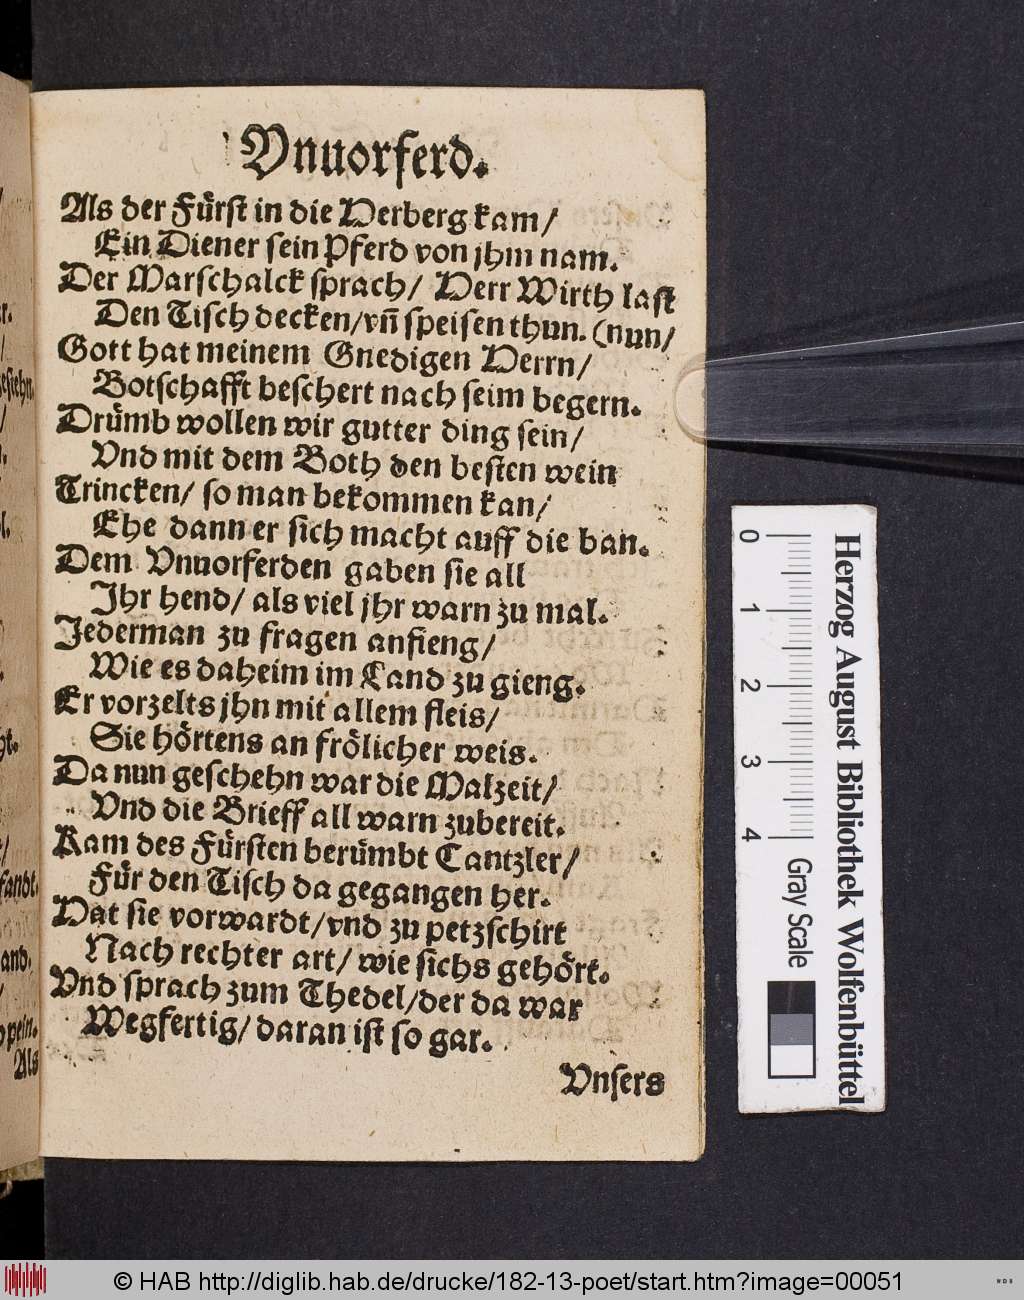 Vnuorferd.
Als der Fürst in die Herberg kam/
Ein Diener sein Pferd von jhm nam.
Der Marschalck sprach/ Herr Wirth last
Den Tisch decken/vn̄ speisen thun. (nun/
Gott hat meinem Gnedigen Herrn/
Botschafft beschert nach seim begern.
Drümb wollen wir gutter ding sein/
Vnd mit dem Both den besten wein
Trincken/ so man bekommen kan/
Ehe dann er sich macht auff die ban.
Dem Vnuorferden gaben sie all
Jhr hend/ als viel jhr warn zu mal.
Jederman zu fragen anfieng/
Wie es daheim im Land zu gieng.
Er vorzelts jhn mit allem fleis/
Sie hörtens an frölicher weis.
Da nun geschehn war die Malzeit/
Vnd die Brieff all warn zubereit.
Kam des Fürsten berümbt Cantzler/
Für den Tisch da gegangen her.
Hat sie vorwardt/vnd zu petzschirt
Nach rechter art/ wie sichs gehört.
Vnd sprach zum Thedel/der da war
Wegfertig/ daran ist so gar.
Vnsers
Als
0 1 2 3 4 Gray Scale
Herzog August Bibliothek Wolfenbüttel
© HAB http://diglib.hab.de/drucke/182-13-poet/start.htm?image=00051